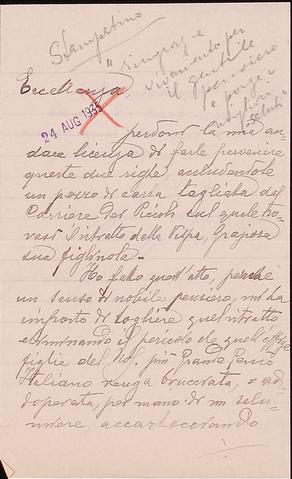 S. Lampertico
"ringrazia
vivamente per
il gentile
pensiero
e porge
saluti"
Eccellenza,
24 AUG 1935
perdoni la mia au-
dace licenza di farle pervenire
queste due righe, accludendole
un pezzo di carta tagliata dal
Corriere dei Piccoli sul quale tro-
vasi il ritratto della Vispa, graziosa
sua figliuola.
Ho fatto quest'atto, perchè
un senso di nobile pensiero, mi ha
imposto di togliere quel ritratto
eliminando il pericolo che quell'effige
figlia del più Grande Genio
Italiano venga bruciata, o ad-
doperata, per mano di un salu-
miere, accartocciando